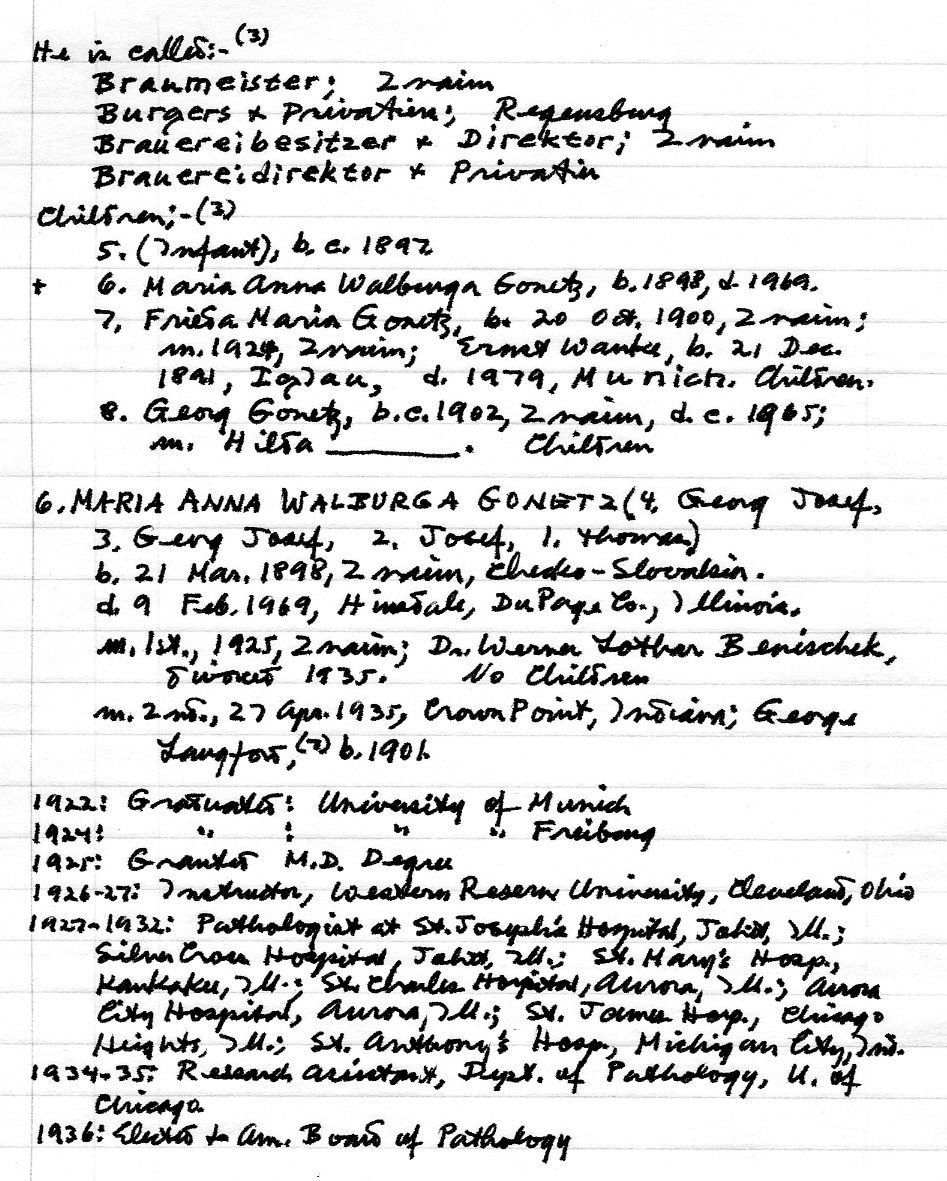 He is called:- (3)
Braumeister; Znaim
Burgers & Privatier; Regensburg
Brauereibesitzer & Direktor; Znaim
Brauereidirektor & Privatier
Children;-(3)
5. (Infant), b. c. 1897
+ 6. Maria Anna Walburga Gonetz, b. 1898, d. 1969.
7, Frieda Maria Gonetz, b. 20 Oct. 1900, Znaim;
m. 1924, Znaim; Ernst Wanke, b. 21 Dec.
1891, Iglau, d. 1979, Munich. Children.
8. Georg Gonetz, b.c. 1902, Znaim, d. c. 1965;
m. Hilda ________. Children
6. MARIA ANNA WALBURGA GONETZ (4. Georg Josef,
3. Georg Josef, 2. Josef, 1. Thomas)
b. 21 Mar. 1898, Znaim, Checko-Slovakia.
d. 9 Feb. 1969, Hinsdale, DuPage Co., Illinois.
m. 1st., 1925, Znaim; Dr. Werner Lothar Benischek,
divorced 1935. No Children
m. 2nd., 27 Apr. 1935, Crown Point, Indiana; George
Langford,(7) b. 1901.
1922: Graduated: University of Munich
1924: " : " " Freiburg
1925: Granted M.D. Degree
1926-27: Instructor, Western Reserve University, Cleveland, Ohio
1927-1932: Pathologist at St. Joseph's Hospital, Joliet, Ill.;
Silver Cross Hospital, Joliet, Ill.; St. Mary's Hosp.,
Kankakee, Ill.; St. Charles Hospital, Aurora, Ill.; Aurora
City Hospital, Aurora, Ill.; St. James Hosp., Chicago
Heights, Ill.; St. Anthony's Hosp., Michigan City, Ind.
1934-35: Research Assistant, Dept. of Pathology, U. of
Chicago
1936: Elected to Am. Board of Pathology